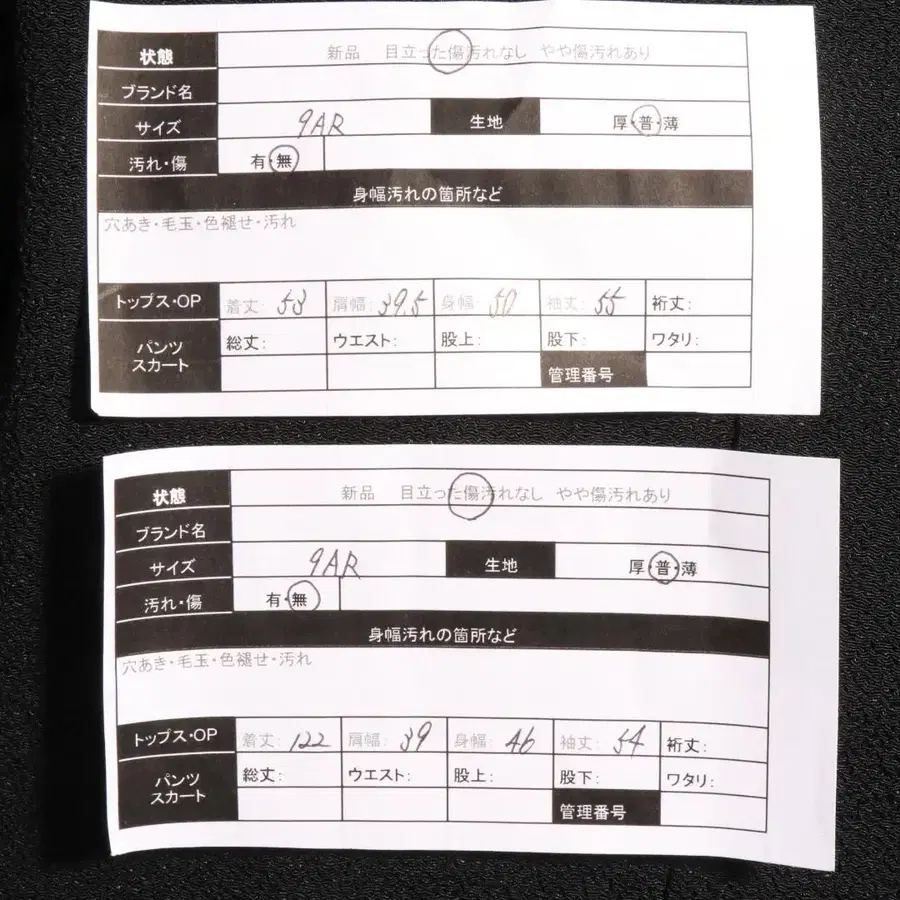 状態 新品 目立った傷汚れなし やや傷汚れあり
ブランド名
サイズ 9AR 生地 厚・普・薄
汚れ・傷 有・無
身幅汚れの箇所など
穴あき・毛玉・色褪せ・汚れ
トップス・OP 着丈: 53 肩幅: 39.5 身幅: 50 袖丈: 55 裄丈:
パンツ 総丈: ウエスト: 股上: 股下: ワタリ:
スカート 管理番号
状態 新品 目立った傷汚れなし やや傷汚れあり
ブランド名
サイズ 9AR 生地 厚・普・薄
汚れ・傷 有・無
身幅汚れの箇所など
穴あき・毛玉・色褪せ・汚れ
トップス・OP 着丈: 122 肩幅: 39 身幅: 46 袖丈: 54 裄丈:
パンツ 総丈: ウエスト: 股上: 股下: ワタリ:
スカート 管理番号